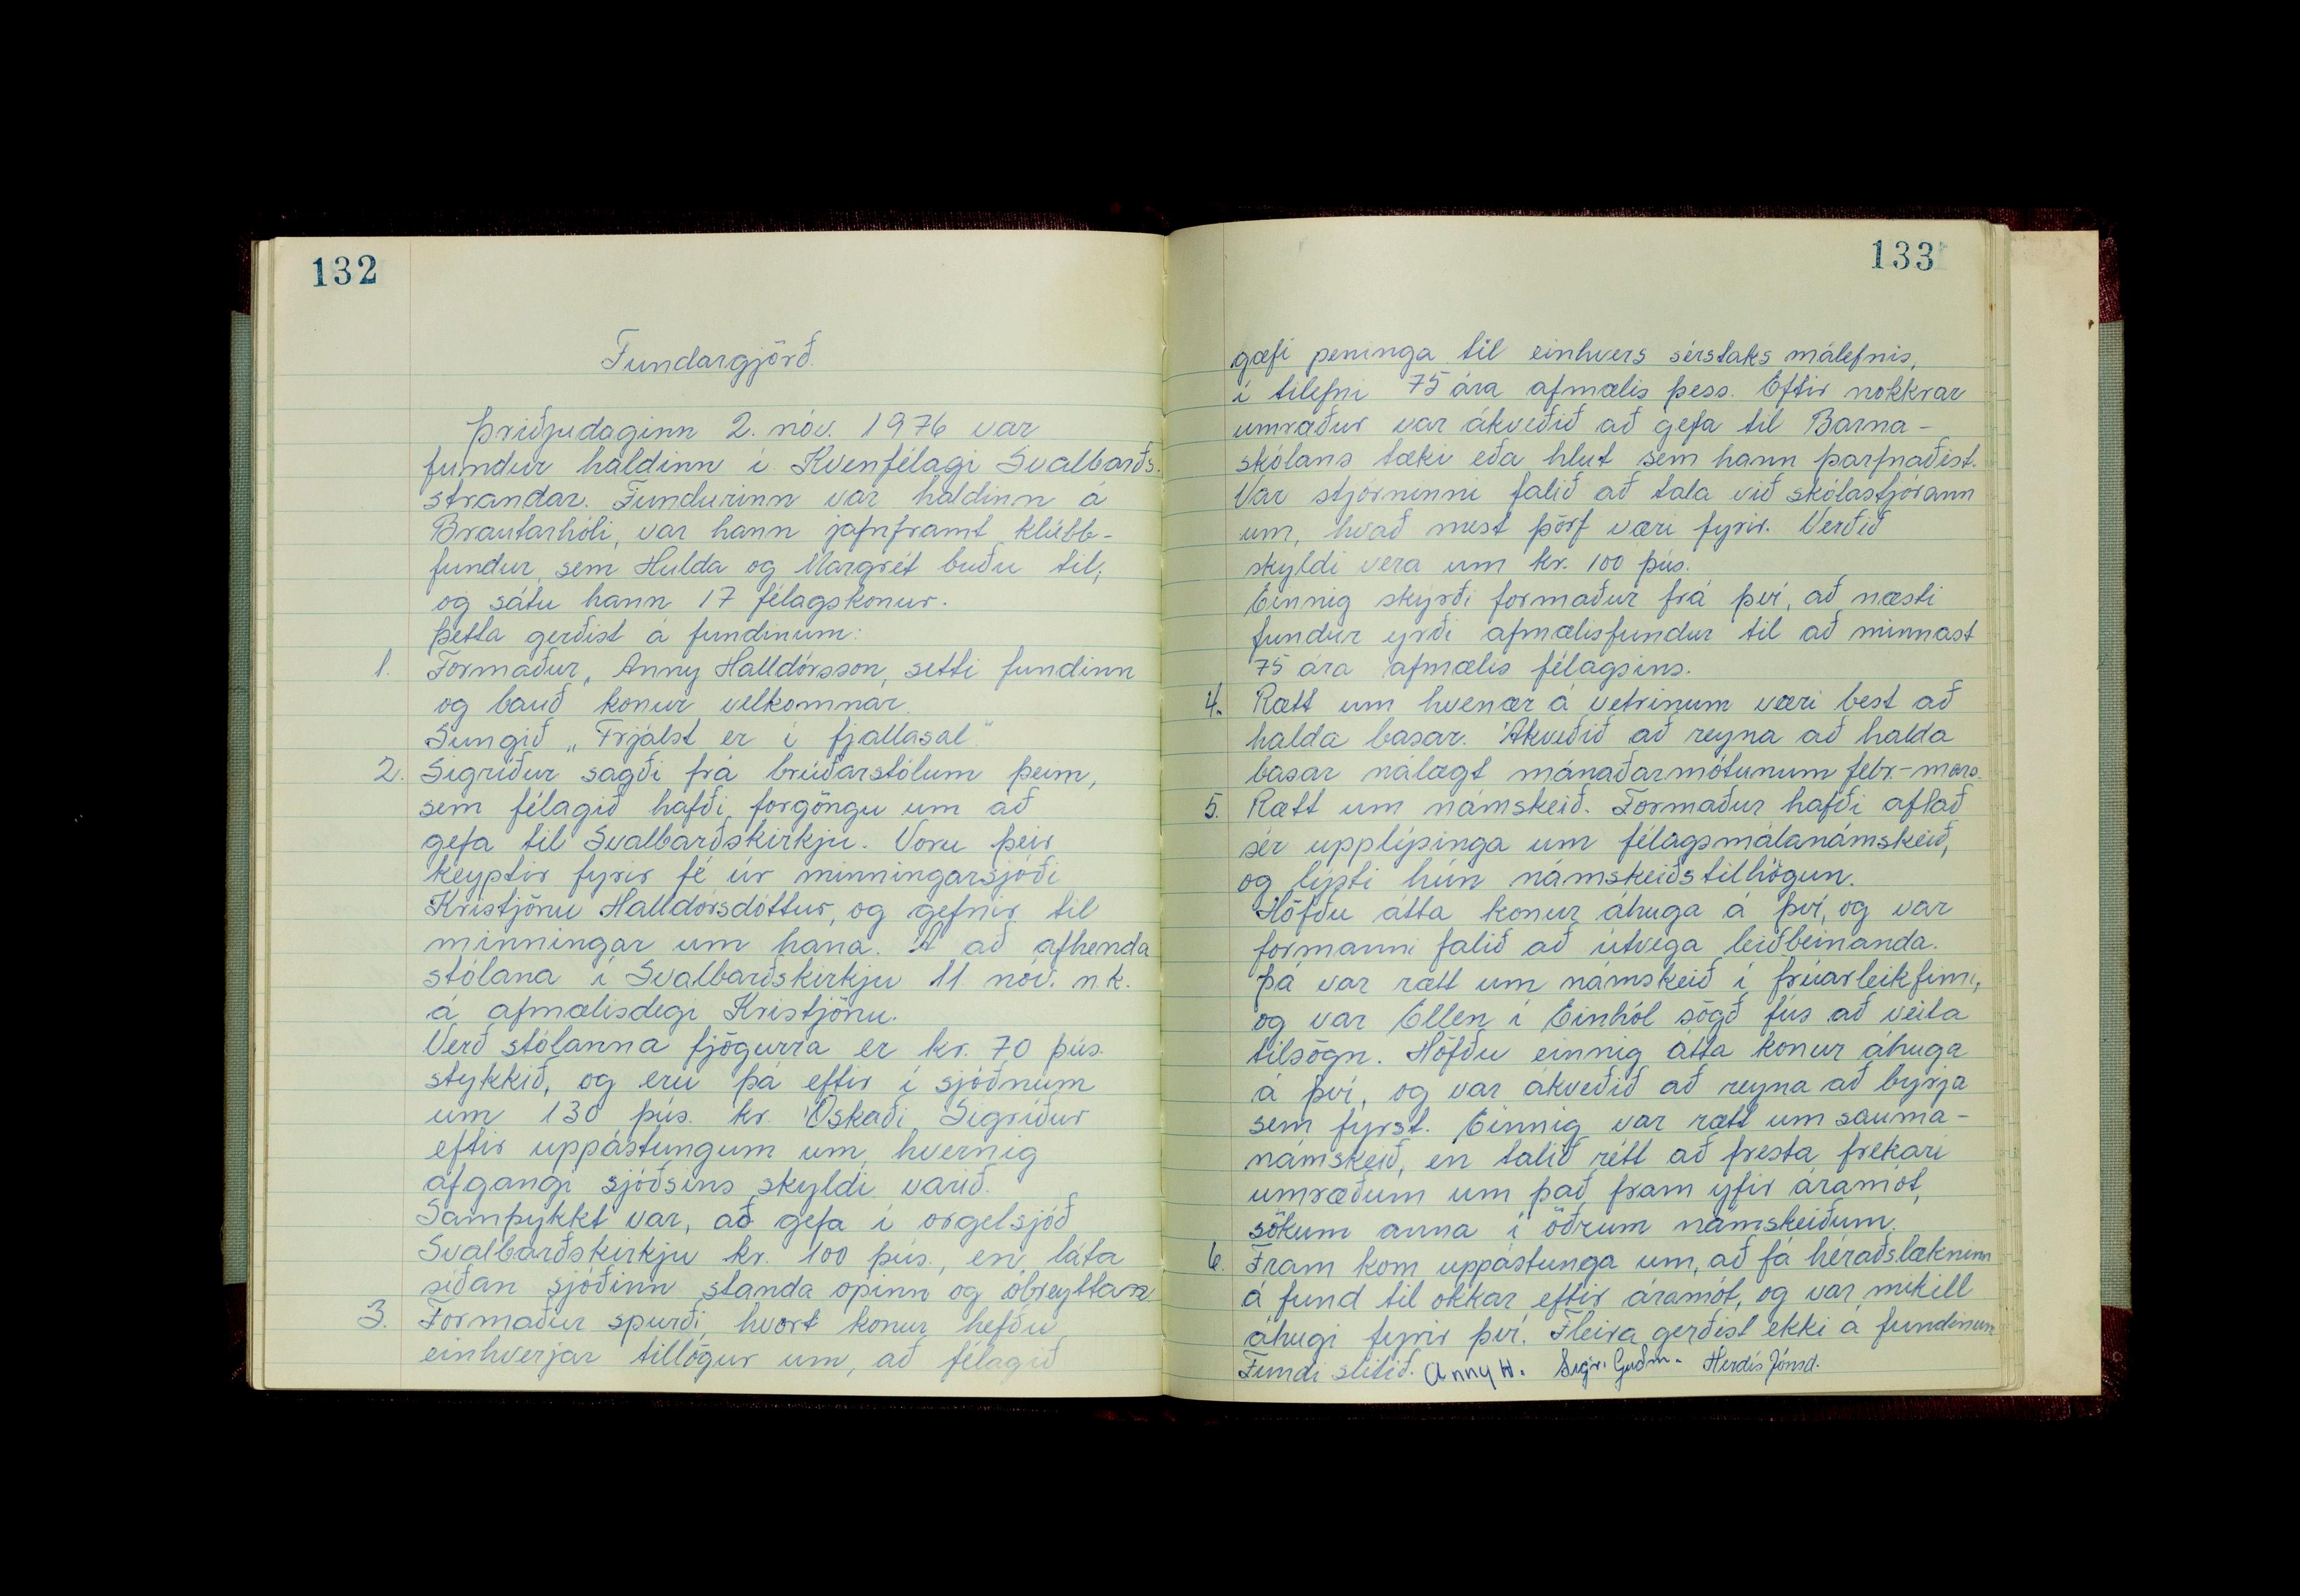 132
Fundargjörð.
Þriðjudaginn 2. nóv. 1976 var
fundur haldinn í Kvenfélagi Svalbarðs-
strandar. Fundurinn var haldinn á
Brautarhóli, var hann jafnframt klúbb-
fundur, sem Hulda og Margrét buðu til;
og sátu hann 17 félagskonur.
Þetta gerðist á fundinum:
1. Formaður, Anny Halldórsson, setti fundinn
og bauð konur velkomnar.
Sungið „Frjálst er í fjallasal"
2. Sigríður sagði frá brúðarstólum þeim,
sem félagið hafði forgöngu um að
gefa til Svalbarðskirkju. Voru þeir
keyptir fyrir fé úr minningarsjóði
Kristjönu Halldórsdóttur, og gefnir til
minningar um hana. Á að afhenda
stólana í Svalbarðskirkju 11. nóv. n.k.
á afmælisdegi Kristjönu.
Verð stólanna fjögurra er kr. 70 þús.
stykkið, og eru þá eftir í sjóðnum
um 130 þús. kr. Óskaði Sigríður
eftir uppástungum um, hvernig
afgangi sjóðsins skyldi varið.
Samþykkt var, að gefa í orgelsjóð
Svalbarðskirkju kr. 100 þús., en láta
síðan sjóðinn standa opinn og óbreyttan
3. Formaður spurði, hvort konur hefðu
einhverjar tillögur um, að félagið
133
gæfi peninga til einhvers sérstaks málefnis,
í tilefni 75 ára afmælis þess. Eftir nokkrar
umræður var ákveðið að gefa til Barna-
skólans tæki eða hlut sem hann þarfnaðist.
Var stjórninni falið að tala við skólastjórann
um, hvað mest þörf væri fyrir. Verðið
skyldi vera um kr. 100 þús.
Einnig skýrði formaður frá því, að næsti
fundur yrði afmælisfundur til að minnast
75 ára afmælis félagsins.
4. Rætt um hvenær á vetrinum væri best að
halda basar. Ákveðið að reyna að halda
basar nálægt mánaðarmótunum febr.-mars.
5. Rætt um námskeið. Formaður hafði aflað
sér upplýsinga um félagsmálanámskeið,
og lýsti hún námskeiðstilhögun.
Höfðu átta konur áhuga á því, og var
formanni falið að útvega leiðbeinanda.
Þá var rætt um námskeið í frúarleikfimi,
og var Ellen í Einhól sögð fús að veita
tilsögn. Höfðu einnig átta konur áhuga
á því, og var ákveðið að reyna að byrja
sem fyrst. Einnig var rætt um sauma-
námskeið, en talið rétt að fresta frekari
umræðum um það fram yfir áramót,
sökum anna í öðrum námskeiðum.
6. Fram kom uppástunga um, að fá héraðslækninn
á fund til okkar eftir áramót, og var mikill
áhugi fyrir því. Fleira gerðist ekki á fundinum
Fundi slitið. Anny H. Sigr. Guðm. Herdís Jónsd.